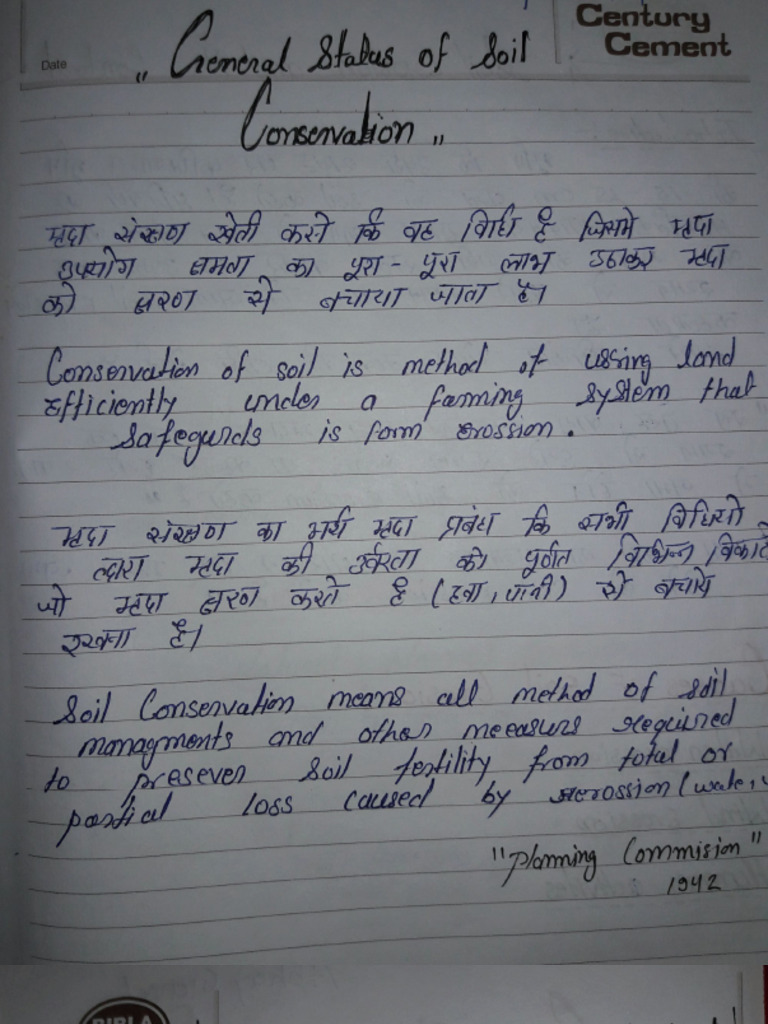 Century
Cement
Date
" General Status of Soil
Conservation "
मृदा संरक्षण खेती करने कि वह विधि है जिसमे मृदा
उपयोग क्षमता का पूरा - पूरा लाभ उठाकर मृदा
को क्षरण से बचाया जाता है।
Conservation of soil is method of ussing land
Efficiently under a farming system that
safegurds is form erossion.
मृदा संरक्षण का अर्थ मृदा प्रबंध कि सभी विधियो
द्वारा मृदा की उर्वरता को पूर्णत विभिन्न
जो मृदा क्षरण करते है (हवा, पानी) से बचाये
रखना है।
Soil Conservation means all method of soil
managments and other meeasurs required
to presever soil fertility from total or
partial loss caused by erossion (wate,
"Planning Commision"
1942
BIRLA